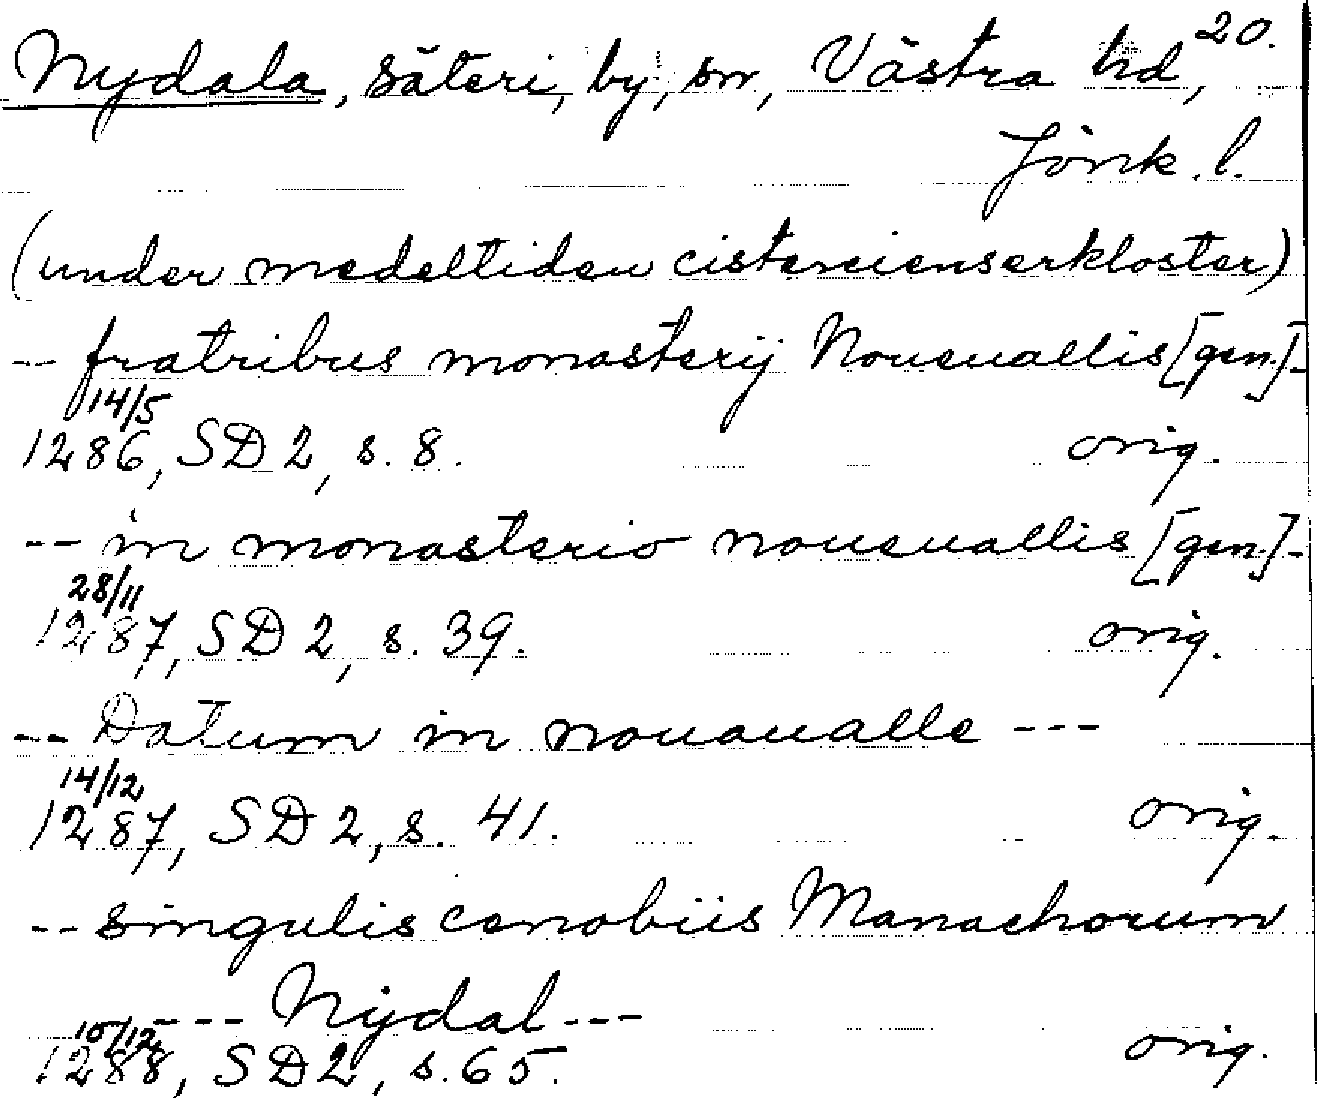 Nydala, säteri, by, sn, Västra hd, 20.
Jönk. l.
(under medeltiden cistercienserkloster)
-- fratribus monasterij Noueuallis [gen.]-
14/5
1286, SD 2, s. 8. orig.
-- in monasterio noueuallis [gen.]-
28/11
1287, SD 2, s. 39. orig.
-- Datum in nouaualle ---
14/12
1287, SD 2, s. 41. orig.
-- singulis cenobiis Monachorum
---- Nydal ---
10/12
1288, SD 2, s. 65. orig.